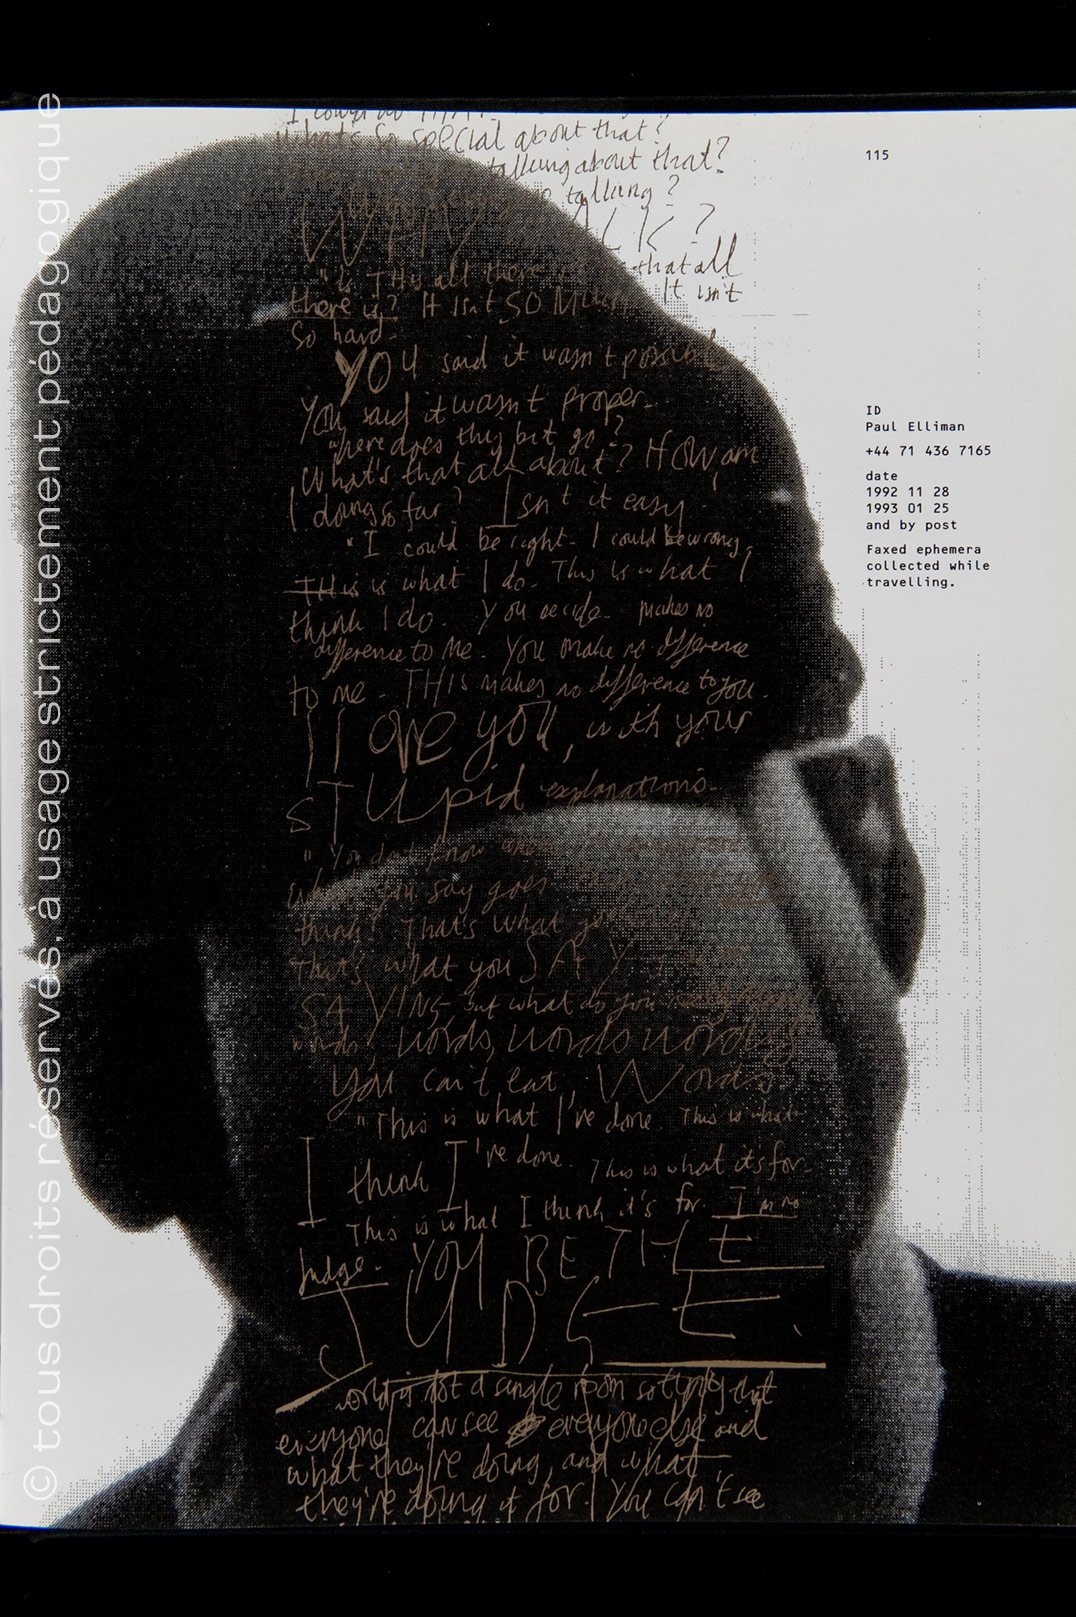 © tous droits réservés, à usage strictement pédagogique
115
What's so special about that?
talking about that?
talking?
WHY TALK?
"is THis all there that all
there is? It isn't SO It isn't
so hard.
YOU said it wasn't possible
You said it wasn't proper.
"where does this bit go?
What's that all about? HOW am
I doing so far? Isn't it easy.
"I could be right. I could be wrong,
THis is what I do. This is what I
think I do. You decide. Makes no
difference to me. You make no difference
to me. THIS makes no difference to you.
I love you, with your
STUpid explanations.
"You don't know
what you say goes
think? That's what
That's what you SAY
SAYING but what do you
words, words, words words
You can't eat Words.
"This is what I've done. This is what
I think I've done. This is what it's for.
This is what I think it's for. I'm no
Judge. YOU BE THE
JUDGE
world is not a single room so that
everyone can see everyone else and
what they're doing, and what
they're doing it for. You can't see
ID
Paul Elliman
+44 71 436 7165
date
1992 11 28
1993 01 25
and by post
Faxed ephemera
collected while
travelling.